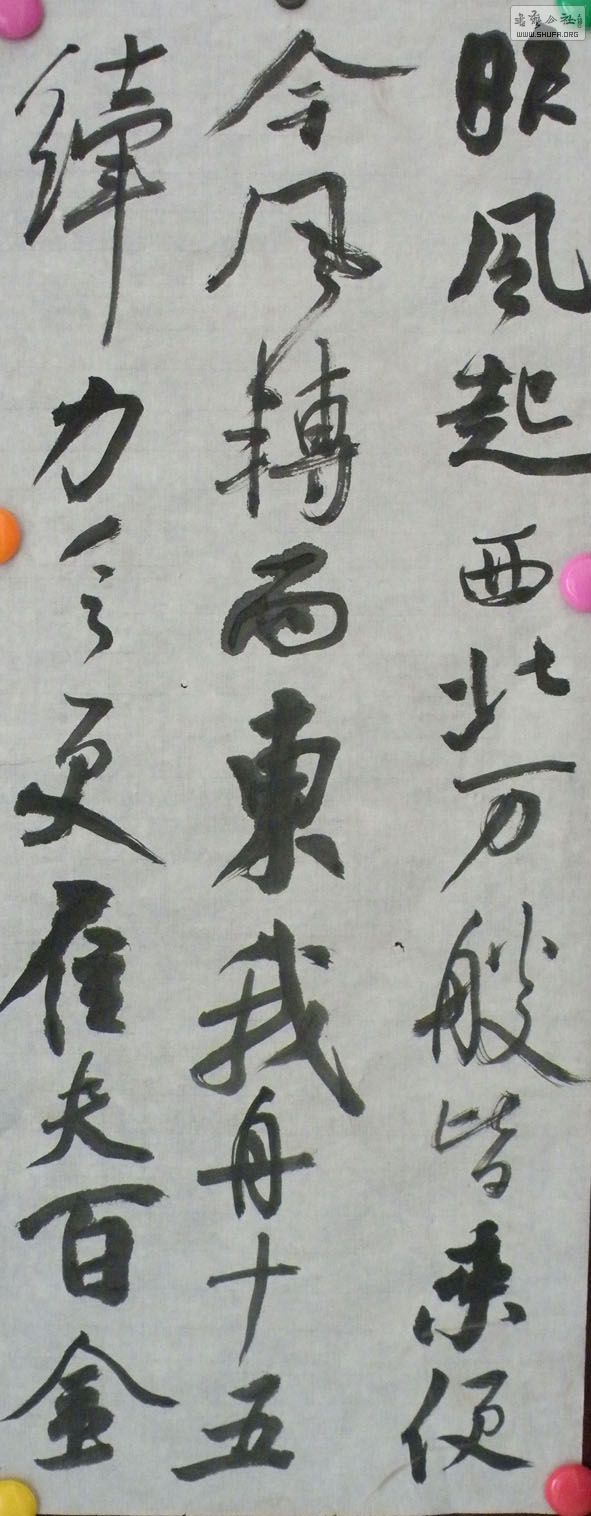 昨風起西北万艘皆乘便
今風轉而東我舟十五
縴力乏更雇夫百金
書藝公社
WWW.SHUFA.ORG